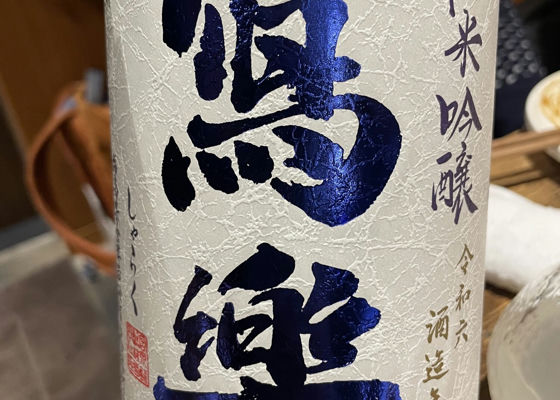 米吟醸
令和六
酒造
寫樂
しゃらく